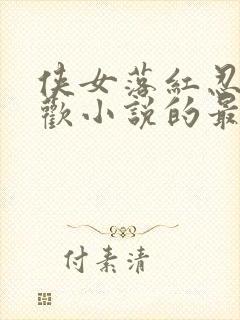 侠女落红忍
歡小説的最
付素清